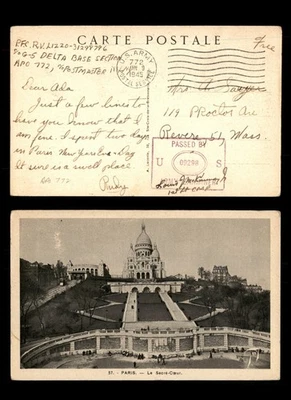 CARTE POSTALE
Free
G-5 DELTA BASE SECTION
APO 772, % POSTMASTER
U.S. ARMY
772
1945
POSTAL SERVICE
Dear Ada
Just a few lines to
have you know that I
am fine. I spent two days
in Paris New Years Eve-Day
It sure is a swell place.
APO 772
Mrs A
114 Proctor Ave
Revere 51, Mass.
PASSED BY
U S
ARMY EXAMINER
27. - PARIS. — Le Sacré-Cœur.